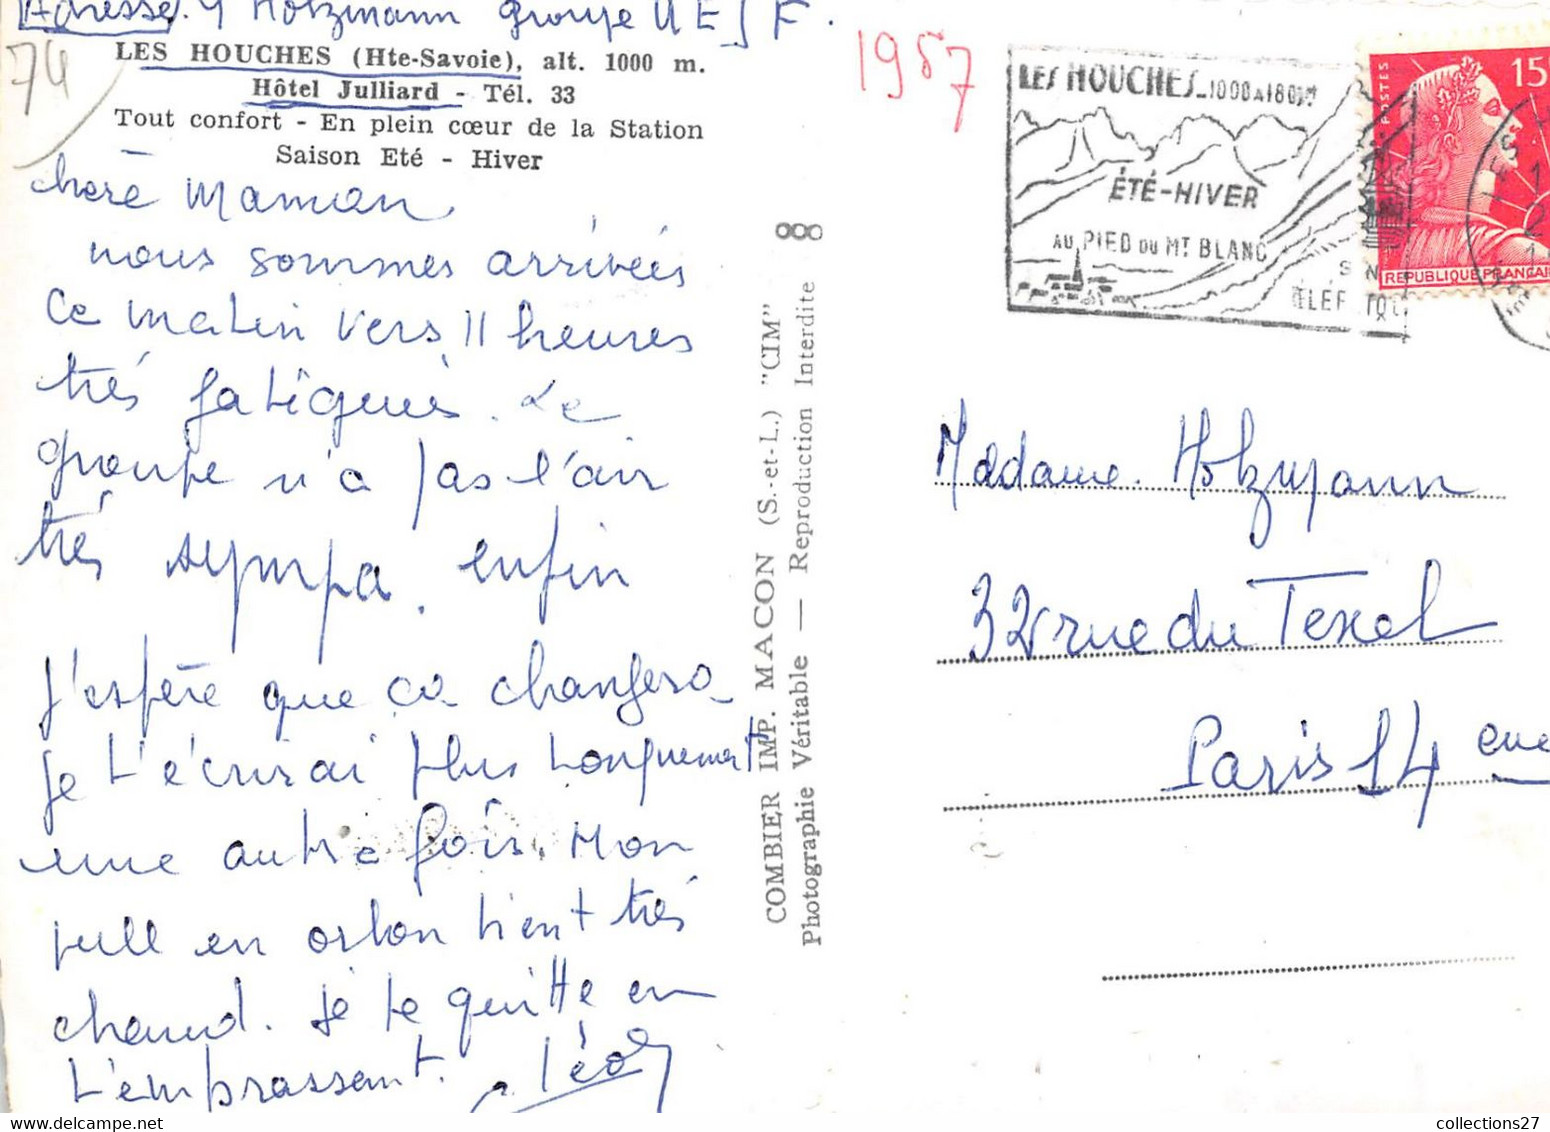 Adresse. Y Holzmann groupe UEJF.
74
LES HOUCHES (Hte-Savoie), alt. 1000 m.
Hôtel Julliard - Tél. 33
Tout confort - En plein cœur de la Station
Saison Eté - Hiver
chère Maman
nous sommes arrivées
ce matin vers 11 heures
très fatigués. Le
groupe n'a pas l'air
très sympa. enfin
j'espère que ça changera
je t'écrirai plus longuement
une autre fois. Mon
pull en orlon tient très
chaud. je te quitte en
t'embrassant. Léo
COMBIER IMP. MACON (S.-et-L.) "CIM"
Photographie Véritable — Reproduction Interdite
1957
LES HOUCHES_1000 A 1800m
ÉTÉ-HIVER
AU PIED DU MT BLANC
POSTES
15F
REPUBLIQUE FRANCAISE
Madame. Holzmann
32 rue du Texel
Paris 14 eme
collections27